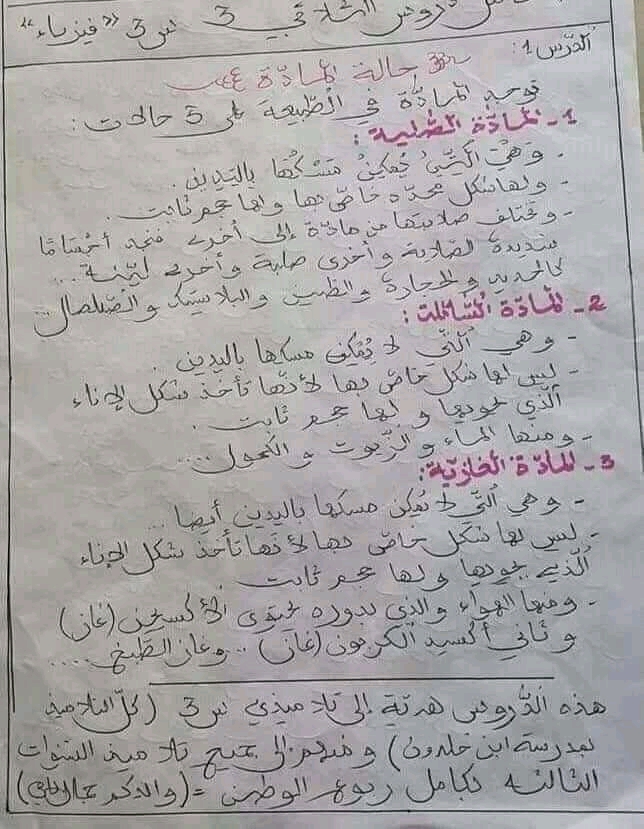 دروس الثلاثي 3 س 3 "فيزياء"
الدّرس 1:
حالة المادّة
توجد المادّة في الطّبيعة على 3 حالات:
1- المادّة الصّلبة:
- وهي الّتي يُمكِنُ مَسْكُها باليدين.
- ولها شكل محدّد خاصّ بها ولها حجم ثابت.
- وتختلف صلابتها من مادّة إلى أخرى فنجد أجسامًا
شديدة الصّلابة وأخرى صلبة وأخرى ليّنة ...
كالحديد والحجارة والطّين والبلاستيك والصّلصال...
2- المادّة السّائلة:
- وهي الّتي لا يُمكِن مسكها باليدين.
- ليس لها شكل خاصّ بها لأنّها تأخذ شكل الإناء
الّذي يحويها ولها حجم ثابت.
- ومنها الماء والزّيوت والكحول....
3- المادّة الغازيّة:
- وهي الّتي لا يُمكن مسكها باليدين أيضا...
- ليس لها شكل خاصّ بها لأنّها تأخذ شكل الإناء
الّذي يحويها ولها حجم ثابت.
- ومنها الهواء والذي بدوره يحتوي الأكسجين (غاز)
و ثاني أكسيد الكربون (غاز) .. وغاز الطّبخ....
هذه الدّروس هديّة إلى تلاميذي س 3 (كلّ التلاميذ
بمدرسة ابن خلدون) ومنهم إلى جميع تلاميذ السنوات
الثالثة بكامل ربوع الوطن =(والدكم)